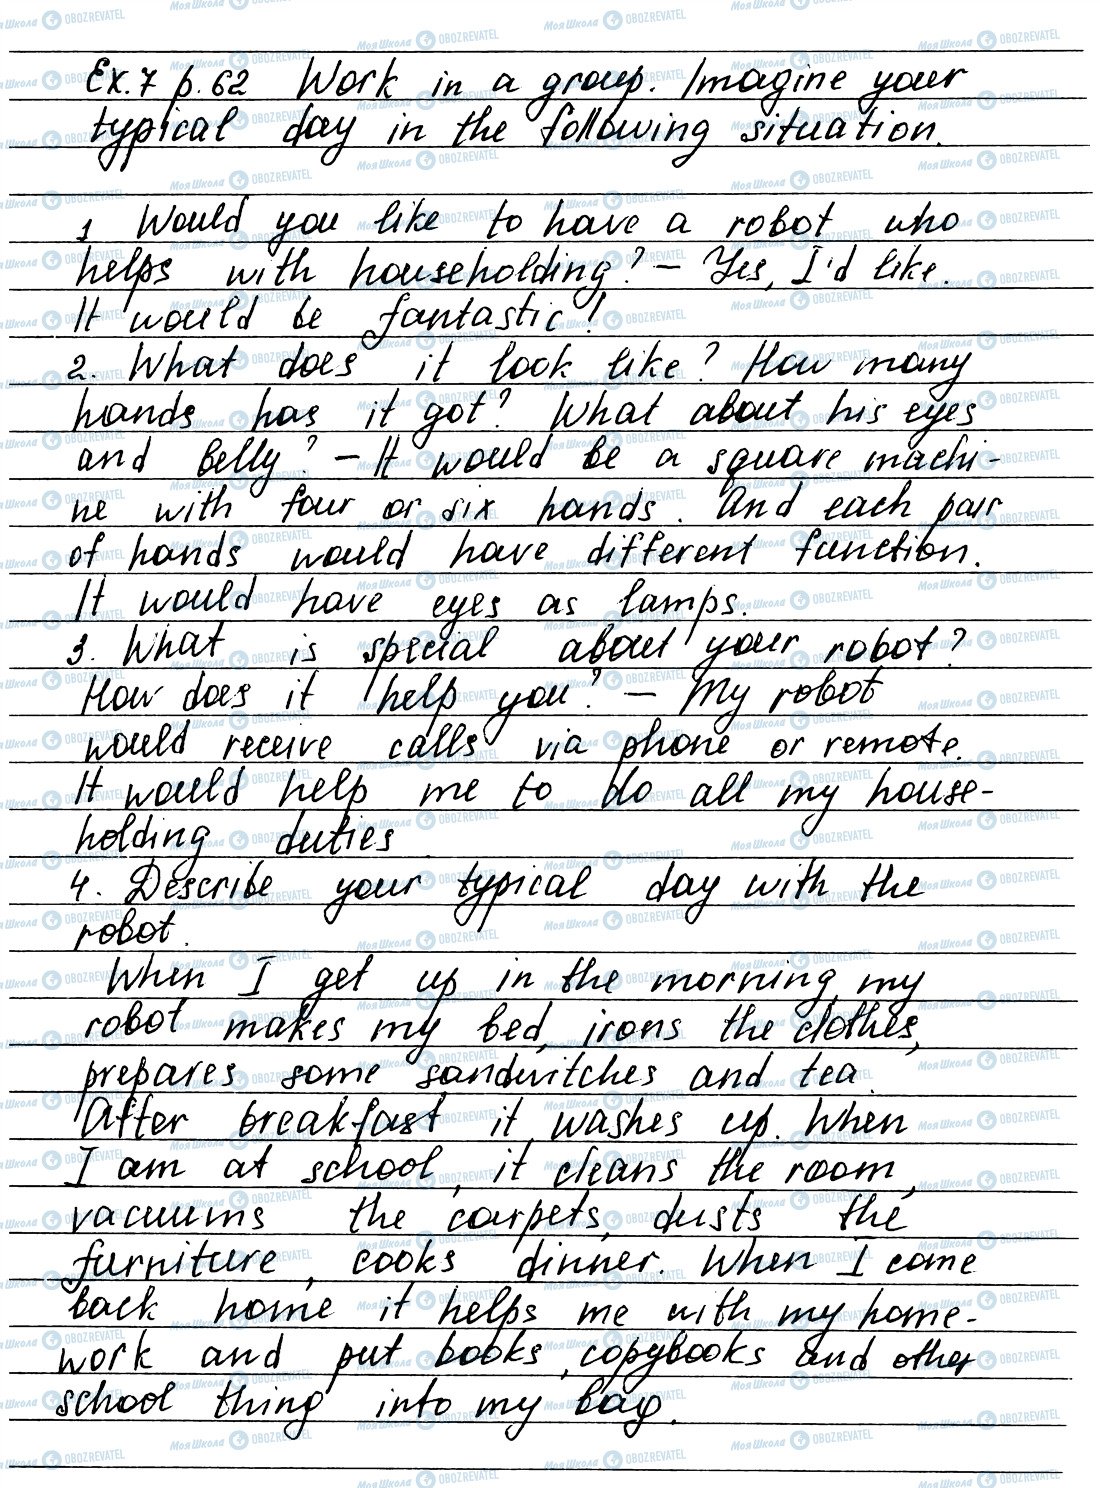 Ex.7 p.62 Work in a group. Imagine your
typical day in the following situation.
1 Would you like to have a robot who
helps with householding? – Yes, I'd like.
It would be fantastic!
2. What does it look like? How many
hands has it got? What about his eyes
and belly? – It would be a square machi-
ne with four or six hands. And each pair
of hands would have different function.
It would have eyes as lamps.
3. What is special about your robot?
How does it help you? – My robot
would receive calls via phone or remote.
It would help me to do all my house-
holding duties.
4. Describe your typical day with the
robot.
When I get up in the morning, my
robot makes my bed, irons the clothes,
prepares some sandwitches and tea.
After breakfast it washes up. When
I am at school, it cleans the room,
vacuums the carpets, dusts the
furniture, cooks dinner. When I come
back home it helps me with my home-
work and put books, copybooks and other
school thing into my bag.